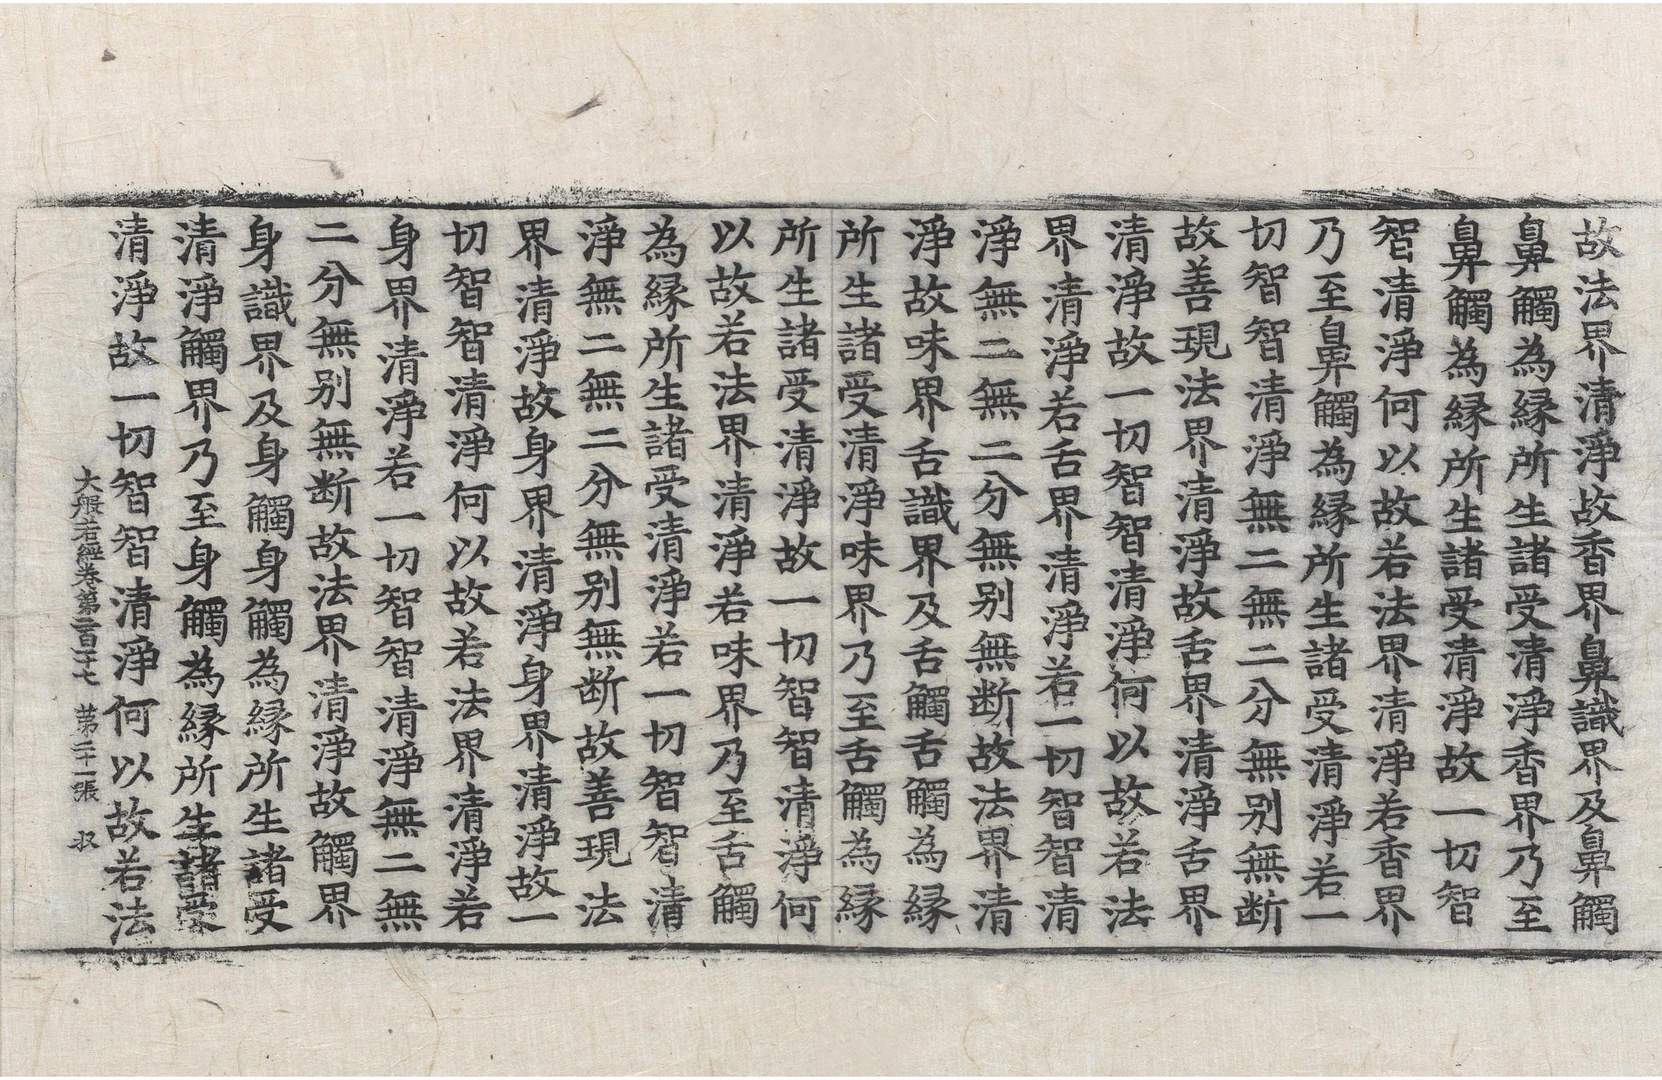 故法界清淨故香界鼻識界及鼻觸
鼻觸為緣所生諸受清淨香界乃至
鼻觸為緣所生諸受清淨故一切智
智清淨何以故若法界清淨若香界
乃至鼻觸為緣所生諸受清淨若一
切智智清淨無二無二分無別無断
故善現法界清淨故舌界清淨舌界
清淨故一切智智清淨何以故若法
界清淨若舌界清淨若一切智智清
淨無二無二分無別無断故法界清
淨故味界舌識界及舌觸舌觸為緣
所生諸受清淨味界乃至舌觸為緣
所生諸受清淨故一切智智清淨何
以故若法界清淨若味界乃至舌觸
為緣所生諸受清淨若一切智智清
淨無二無二分無別無断故善現法
界清淨故身界清淨身界清淨故一
切智智清淨何以故若法界清淨若
身界清淨若一切智智清淨無二無
二分無別無断故法界清淨故觸界
身識界及身觸身觸為緣所生諸受
清淨觸界乃至身觸為緣所生諸受
清淨故一切智智清淨何以故若法
大般若經卷第二百二十七 第二十一張 収